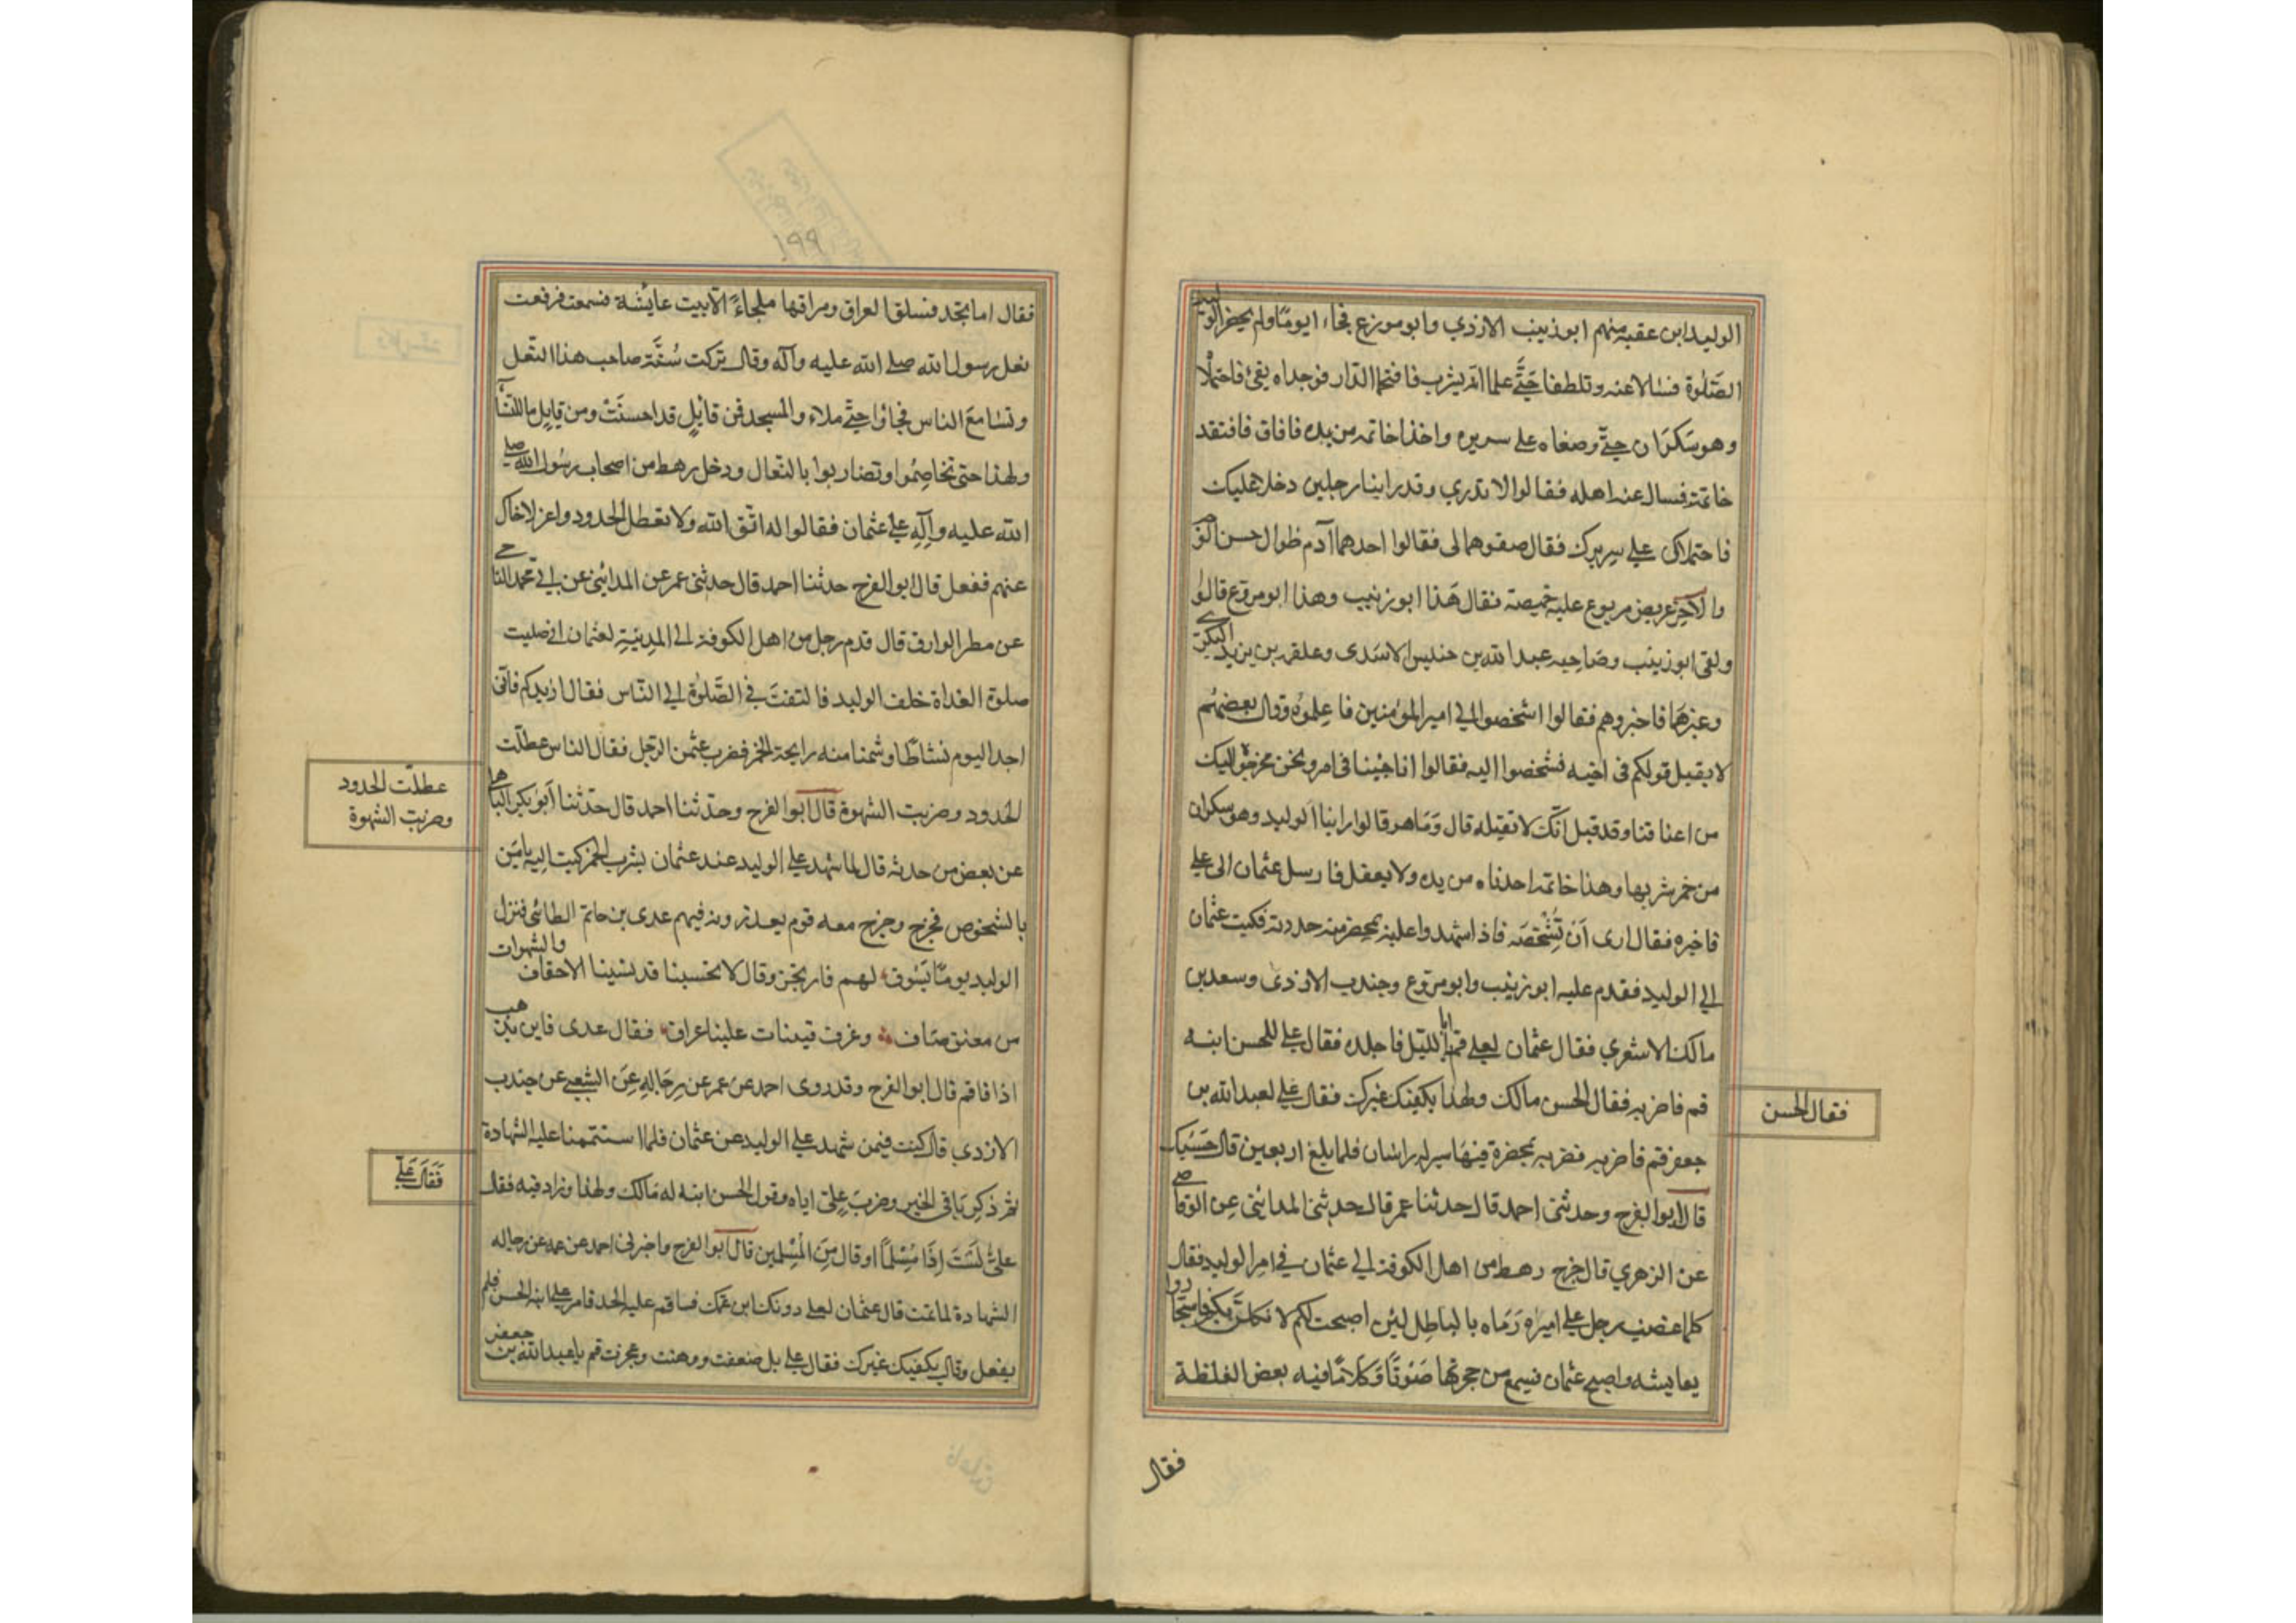 الوليد ابن عقبه منهم ابو زينب الازدي وابو مورع فجاءا يوما ولم يحضر الوليد
الصَّلٰوة فسالا عنه وتلطفا حَتَّى علما انه يشرب فاقتحما الدّار فوجداه يقئ فاحتملا
وهو سَكرَان حتّى وضعاه على سريره واخذا خاتمه من يده فافاق فافتقد
خاتمه فسال عنه اهله فقالوا لا ندري وقد راينا رجلين دخلا عليك
فاحتملاك على سريرك فقال صفوهما لى فقالوا احدهما آدم طوال حسن الوجه
والآخر عريض مربوع عليه خميصة فقال هَذا ابو زينب وهذا ابو مروع قالوا
ولقى ابو زينب وصَاحبه عبد الله بن حنليس الاسَدى وعلقمه بن يزيد البكرى
وغيرهَما فاخبروهم فقالوا اشخصوا الى امير المؤمنين فاعِلموُه وقال بعضهُم
لا يقبل قولكم فى اخيه فشخصوا اليه فقالوا انا جئناك فى امر ونحن مخرجوه اليك
من اعناقنا وقد قيل انّك لا تقبله قال وَمَا هو قالوا راينا الوليد وهو سكران
من خمر شربها وهذا خاتمه اخذناه من يده ولا يعقل فارسل عثمان الى على
فاخبره فقال ارى اَن تُشْخصَه فاذا شهدوا عليه بمحضر منه حددته فكتب عثمان
الى الوليد فقدم عليه ابو زينب وابو مروع وجندب الازدى وسعد بن
مالك الاشعري فقال عثمان لعلى قم يا ابا ليل فاجلده فقال على للحسن ابنه
قم فاضربه فقال الحسن مالك ولهذا يكفيك غيرك فقال على لعبد الله بن
جعفر قم فاضربه فضربه بمخصرة فيهَا سير له راسان فلما بلغ اربعين قال حَسْبك
قال ابو الفرج وحدثنى احمد قال حدثنا عمر قال حدثنى المدائنى عن الوقاصى
عن الزهري قال خرج رهط من اهل الكوفة الى عثمان فى امر الوليد فقال
كلما غضب رجل على اميره رَمَاه بالباطِل لئن اصبحت لكم لا نكلنّ بكم فاستجاروا
بعايشه واصبح عثمان فسمع من حجرتها صَوْتًا وَكلامًا فيه بعض الغلظة
فقال الحسن
فقال
١٩٩
فقال اما تجد فسّاق العراق ومراقها ملجاءً الا بيت عايشة فسمعت فرفعت
نعل رسول الله صلى الله عليه وآله وقالت تركت سُنَّة صاحب هذا النّعل
وتسامعَ الناس فجاؤا حتّى ملاء والمسجد فمن قائلٍ قد احسنَتْ ومن قايلٍ ما للنسآء
ولهذا حتى تخاصمُوا وتضاربوا بالنّعال ودخل رهط من اصحاب رسُول الله صلى
الله عليه وآلِهِ على عثمان فقالوا له اتّق الله ولا تعطل الحدود واعزل اخاك
عنهم ففعل قال ابو الفرج حدثنا احمد قال حدثنى عمر عن المدائنى عن ابى محمد الناجى
عن مطر الوارق قال قدم رجل من اهل الكوفة الى المدينة لعثمان انى صليت
صلوة الغداة خلف الوليد فالتفتَ فى الصَّلٰوة الى النّاس فقال ازيدكم فانّى
اجد اليوم نشاطًا وشممنا منه رايحة الخمر فضرب عثمن الرّجل فقال الناس عطلّت
الحدود وضربت الشهوة قال ابوا الفرج وحدّثنا احمد قال حدّثنا ابو بكر الباهلى
عن بعض من حدثه قال لما شهد على الوليد عند عثمان بشرب الخمر كتب اليه يامَره
بالشخوص فخرج وخرج معه قوم يعذرونه فيهم عدى بن حاتم الطائى فنزل
الوليد يومًا يَسُوق لهم فارتجز وقال لا تحسبنا قد نسينا الاحقاف
والشهوات
من معتق صَاف وعزف قينات علينا عزاف فقال عدى فاين تذهب
اذا فاقم قال ابو الفرج وقد روى احمد عن عمر عن رجَالِهِ عنَ الشعبى عن جندب
الازدي قال كنت فيمن شهد على الوليد عن عثمان فلما استتممنا عليه الشهادة
ثم ذكر بَاقى الخبر وضربَ علىّ اياه وقول الحسن ابنه له مَالك ولهذا وزاد فيه فقال
علىٌّ لَسْتَ اِذًا مُسْلمًا او قال منَ المُسْلمين قال ابوا الفرج واخبرنى احمد عن عمر عن رجاله
الشهادة لما تمت قال عثمان لعلى دونك ابن عمك فاقم عليه الحد فامر على ابنه الحسن فلم
يفعل وقال يكفيك غيرك فقال على بل ضعفت ووهنت وعجزت قم يا عبد الله بن جعفر
عطلّت الحدود
وضربت الشهوة
فَقَالَ عَلىّ